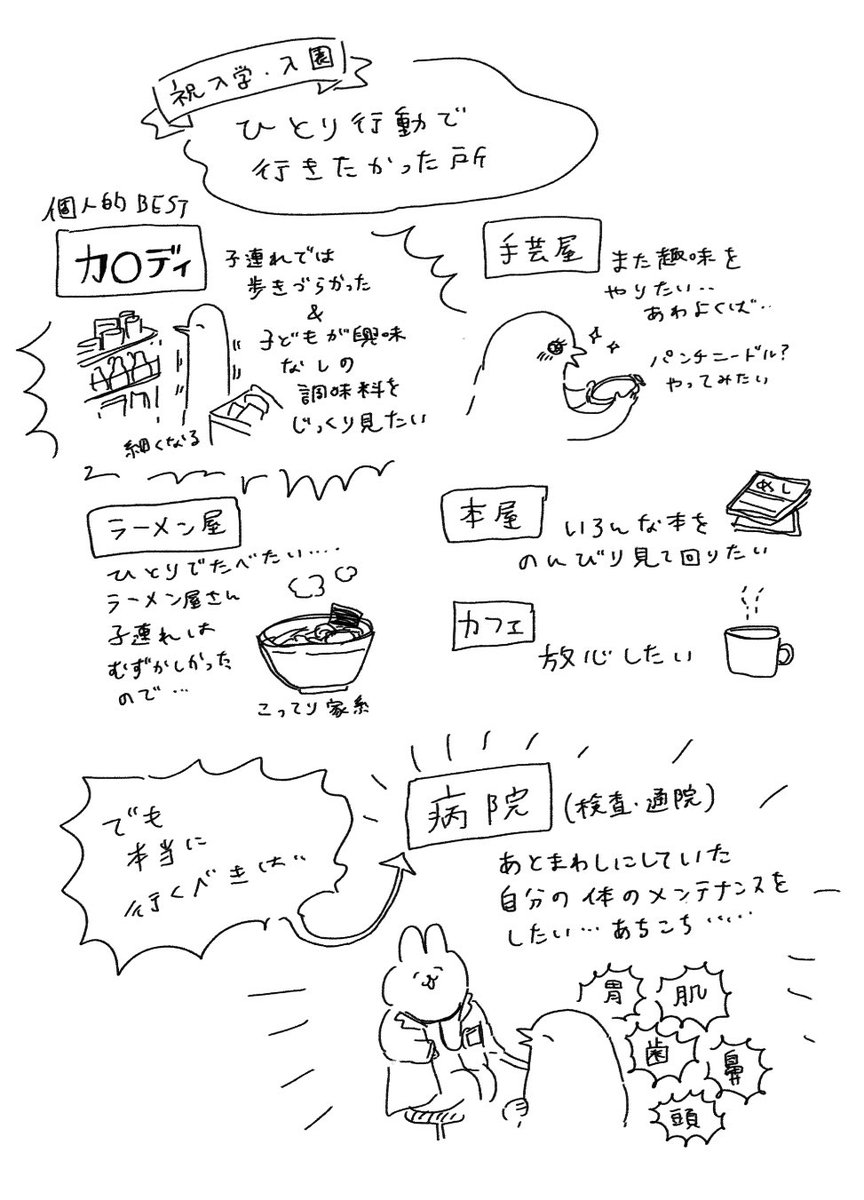 祝入学・入園
ひとり行動で
行きたかった所
個人的BEST
カ〇ディ
子連れでは
歩きづらかった
&
子どもが興味
なしの
調味料を
じっくり見たい
細くなる
手芸屋
また趣味を
やりたい‥
あわよくば‥
パンチニードル?
やってみたい
ラーメン屋
ひとりでたべたい‥‥
ラーメン屋さん
子連れは
むずかしかった
ので…
こってり家系
本屋
いろんな本を
のんびり見て回りたい
めし
カフェ
放心したい
でも
本当に
行くべきは‥
病院
(検査・通院)
あとまわしにしていた
自分の体のメンテナンスを
したい…あちこち‥‥
胃
肌
歯
鼻
頭